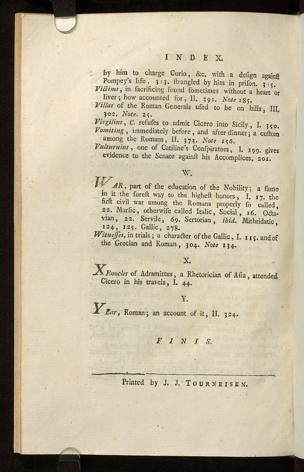 INDEX.
by him to charge Curio, &c. with a design against
Pompey's life. 313. strangled by him in prison. 315.
Victims, in sacrificing found sometimes without a heart or
liver; how accounted for, II. 391. Note 185.
Villas of the Roman Generals used to be on hills, III.
302. Note. 25.
Virgilius, C. refuses to admit Cicero into Sicily, I. 350.
Vomiting, immediately before, and after dinner; a custom
among the Romans, II. 371. Note 156.
Vulturnius, one of Catiline's Conspirators, I. 199. gives
evidence to the Senate against his Accomplices, 201.
W.
WAR, part of the education of the Nobility; a fame
in it the surest way to the highest honors, I, 17. the
first civil war among the Romans properly so called,
22. Marsic, otherwise called Italic, Social, 16. Octa-
vian, 22. Servile, 69. Sertorian, ibid. Mithridatic,
124, 125. Gallic, 278.
Witnesses, in trials; a character of the Gallic, I. 115. and of
the Grecian and Roman, 304. Note 134.
X.
XEnocles of Adramittus, a Rhetorician of Asia, attended
Cicero in his travels, I. 44.
Y.
YEar, Roman; an account of it, II. 324.
FINIS.
Printed by J. J. TOURNEISEN.